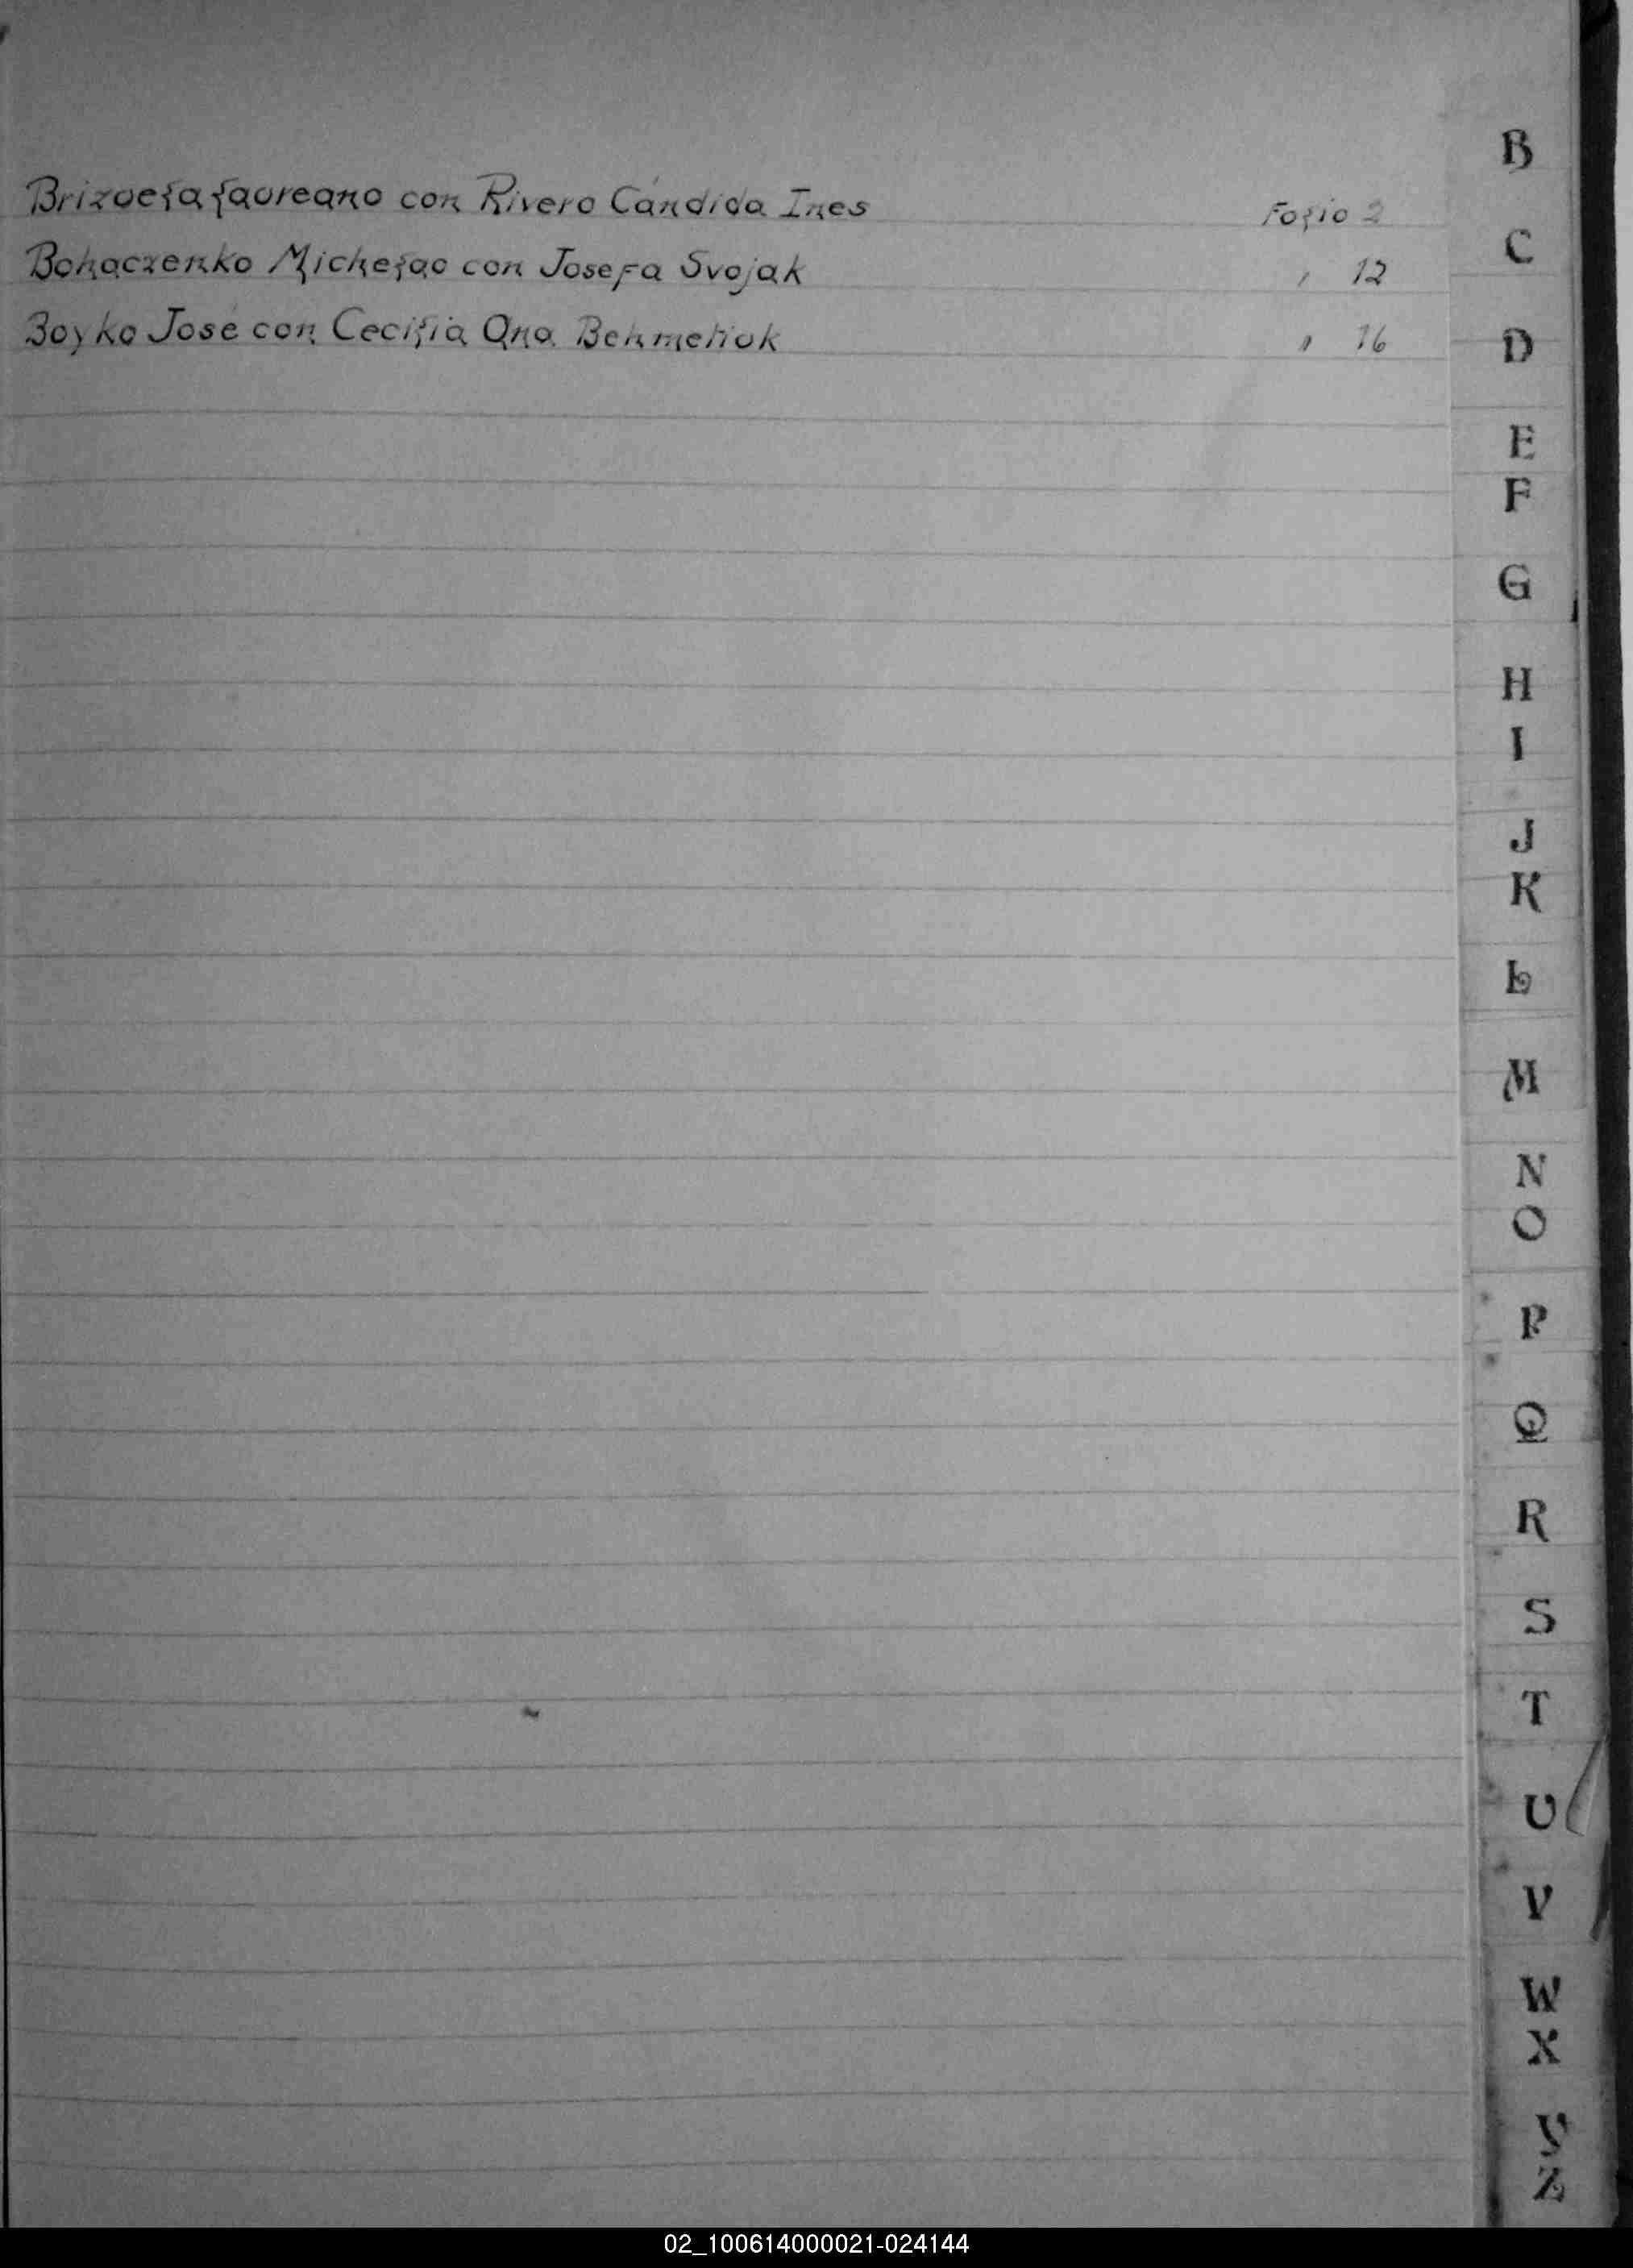 Brizuela Laureano con Rivero Cándida Ines Folio 2
Bohaczenko Michelao con Josefa Svojak " 12
Boyko José con Cecilia Ana " 16
B
C
D
E
F
G
H
I
J
K
L
M
N
O
P
Q
R
S
T
U
V
W
X
Y
Z
02_100614000021-024144